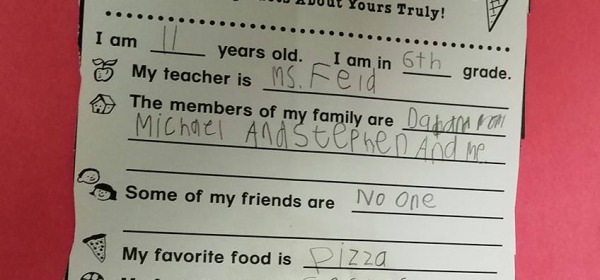 About Yours Truly!
I am 11 years old. I am in 6th grade.
My teacher is Ms. Feld
The members of my family are
Michael And Stephen And me
Some of my friends are No one
My favorite food is pizza